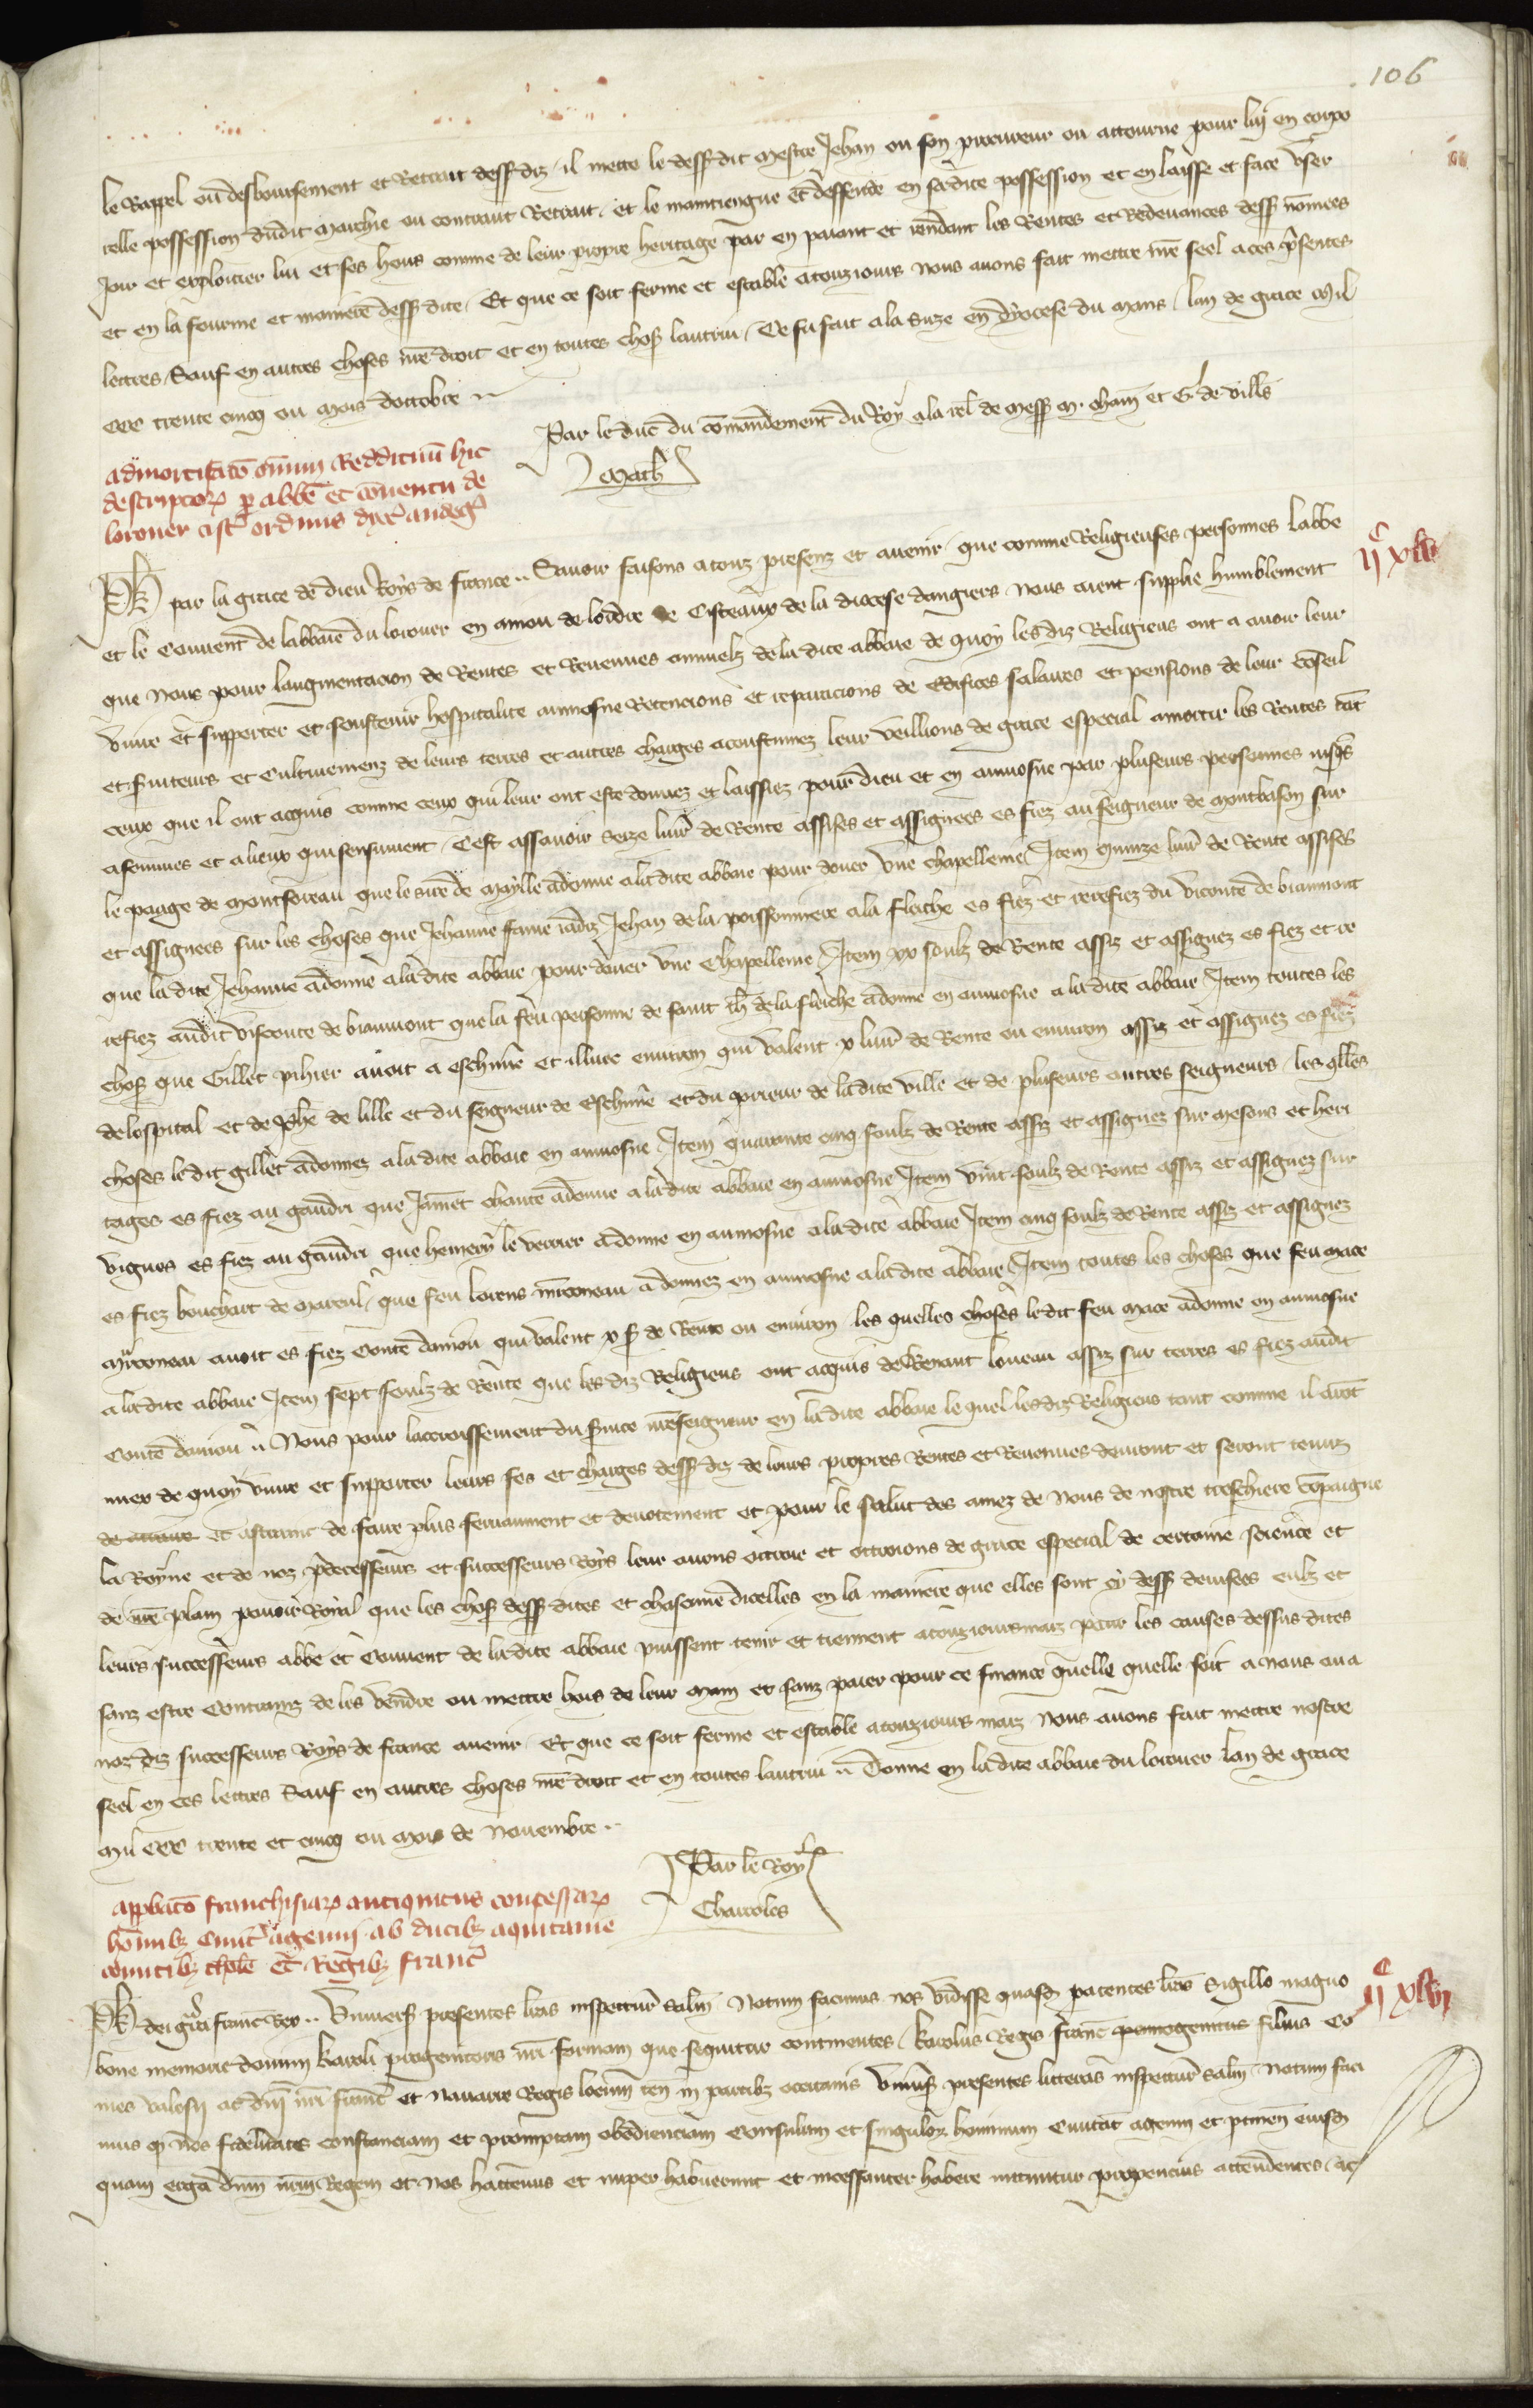 106
le Rappel ou desboursement et Retrait dessusdiz, il mette le dessusdit mestre Jehan ou son procureur ou attourne pour lui en corpo
relle possession dudit marchie ou contraut Retrait, et le maintiengne et deffende en sadite possession et en laisse et face user
joir et exploictier lui et ses hers comme de leur propre heritage par en paiant et rendant les Rentes et Redevances dess nommees
et en la fourme et maniere dessdite, Et que ce soit ferme et estable a touzjours nous avons fait mettre nre seel a ces presentes
lettres, Sauf en autres choses nre droit et en toutes chos lautrui, Ce fu fait a la Suze en dyocese du Mans, lan de grace Mil
CCC trente cinq ou mois doctobre
Par le duc du commandement du Roy a la rel de mess M. cham et G. de vills
Math
admortisacio omnium Reddituum hic
descriptorum per abbem et conventum de
loroner cist ordinis dyoc andeg
IIc XLVI
Ph par la grace de dieu Roys de france. Savoir faisons a touz presenz et avenir, que comme Religieuses personnes labbe
et le Convent de labbaie du loroner en aniou de lordre de Cisteaux de la diocese dangiers nous aient supplie humblement
que nous pour laugmentacion de Rentes et Revenues annuelz de la dite abbaie de quoy lesdiz Religieus ont a avoir leur
vivre et supporter et soustenir hospitalite aumosne Retencions et reparacions de edifices salaires et pensions de leur conseil
et serviteurs et Cultivemenz de leurs terres et autres charges acoustumez leur veillions de grace especial amortir les Rentes tant
ceux que il ont acquis comme ceux qui leur ont este donnez et laissiez pour dieu et en aumosne par pluseurs personnes jusqs
a sommes et a lieux qui sensuivent, Cest assavoir seze livr de Rente assises et assignees es fiez au seigneur de montbason sur
le paage de montsoreau que le sire de maylle a donne a la dite abbaie pour doner une chapellenie Item quinze livr de Rente assises
et assignees sur les choses que Jehanne fame jadiz Jehan de la poissonniere a la fleiche es fiez et rerefiez du viconte de biaumont
que la dite Jehanne a donne a la dite abbaie pour doner une Chapellenie, Item xx soulz de Rente assiz et assignez es fiez et re
refiez audit visconte de biaumont que la feu personne de saint th de la fleiche a donne en aumosne a la dite abbaie Item toutes les
chos que Gillet pihier avoit a eschivre et illuec environ qui valent x livr de Rente ou environ assiz et assignez es fiez
de lospital et de Jehe de lille et du seigneur de Eschivre et du prieur de la dite ville et de pluseurs autres seigneurs, les qlles
choses ledit gillet a donnez a la dite abbaie en aumosne Item quarante cinq soulz de Rente assiz et assignez sur mesons et heri
tages es fiez au gaudri que Jamet chante a donne a la dite abbaie en aumosne Item vint soulz de Rente assiz et assignez sur
vignes es fiez au gaudri que hemery le verrier a donne en aumosne a la dite abbaie Item cinq soulz de Rente assiz et assignez
es fiez bouchart de mareul, que feu lorens mirconeau a donnez en aumosne a la dite abbaie, Item toutes les choses que feu mace
mirconeau avoit es fiez Conte daniou qui valent x s de Rente ou environ les quelles choses ledit feu mace a donne en aumosne
a la dite abbaie Item sept soulz de Rente que les diz Religieus ont acquis de Renaut loneau assiz sur terres es fiez audit
Conte daniou. Nous pour lacroissement du service nreseigneur en la dite abbaie le quel lesdiz Religieus tant comme il aront
miex de quoy vivre et supporter leurs fes et charges dess diz de leurs propres Rentes et Revenues devront et seront tenuz
et astraint de faire plus fervaument et devotement et pour le salut des ames de nous de nostre treschiere compaigne
la Royne et de noz predecesseurs et successeurs Roys leur avons ottroie et ottroions de grace especial de certaine science et
de nre plain povoir Roial que les chos dess dites et chascune dicelles en la maniere que elles sont cy dess devisees eulz et
leurs successeurs abbe et Convent de la dite abbaie puissent tenir et tiennent a touzjoursmaiz pour les causes dessus dites
sanz estre Contrainz de les vendre ou mettre hors de leur main et sanz paier pour ce finance quelle quelle soit a nous ou a
noz diz successeurs Roys de france avenir, Et que ce soit ferme et estable a touzjours maiz Nous avons fait mettre nostre
seel en ces lettres Sauf en autres choses nre droit et en toutes lautrui. Donne en ladite abbaie du loroner lan de grace
Mil CCC trente et cinq ou mois de Novembre
Par le Roy
Charroles
approbacio franchisiarum antiquitus concessarum
hominib civit agenni ab ducib aquitanie
comitib thole et Regib franc
IIc XLVII
Ph dei gra franc Rex. Univers presentes lras inspectur saltm Notum facimus nos vidisse quasd patentes lras Sigillo magno
bone memorie domini Karoli progenitoris nri formam que sequitur continentes, Karolus Regis franc primogenitus filius Co
mes valosij ac dni nri franc et Navarre Regis locum ten in partib occitanis Univs presentes litteras inspectur saltm, Notum faci
mus q nos fidelitatis constanciam et promptam obedienciam Consulum et singulor hominum Civitat agenn et ptinen eiusd
quam erga dnm nrm Regem et nos hactenus et nuper habuerunt et incessanter habere nituntur propencius attendentes, ac